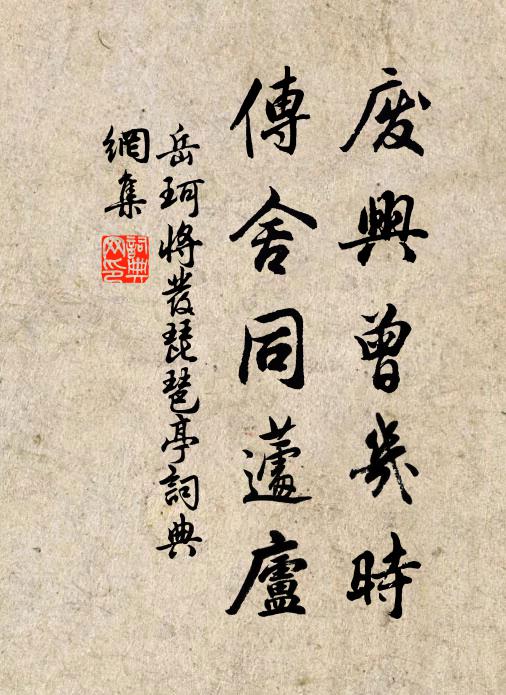 廢興曾幾時
傳舍同蘧廬
岳珂將發琵琶亭詞典
網集
詞典網印